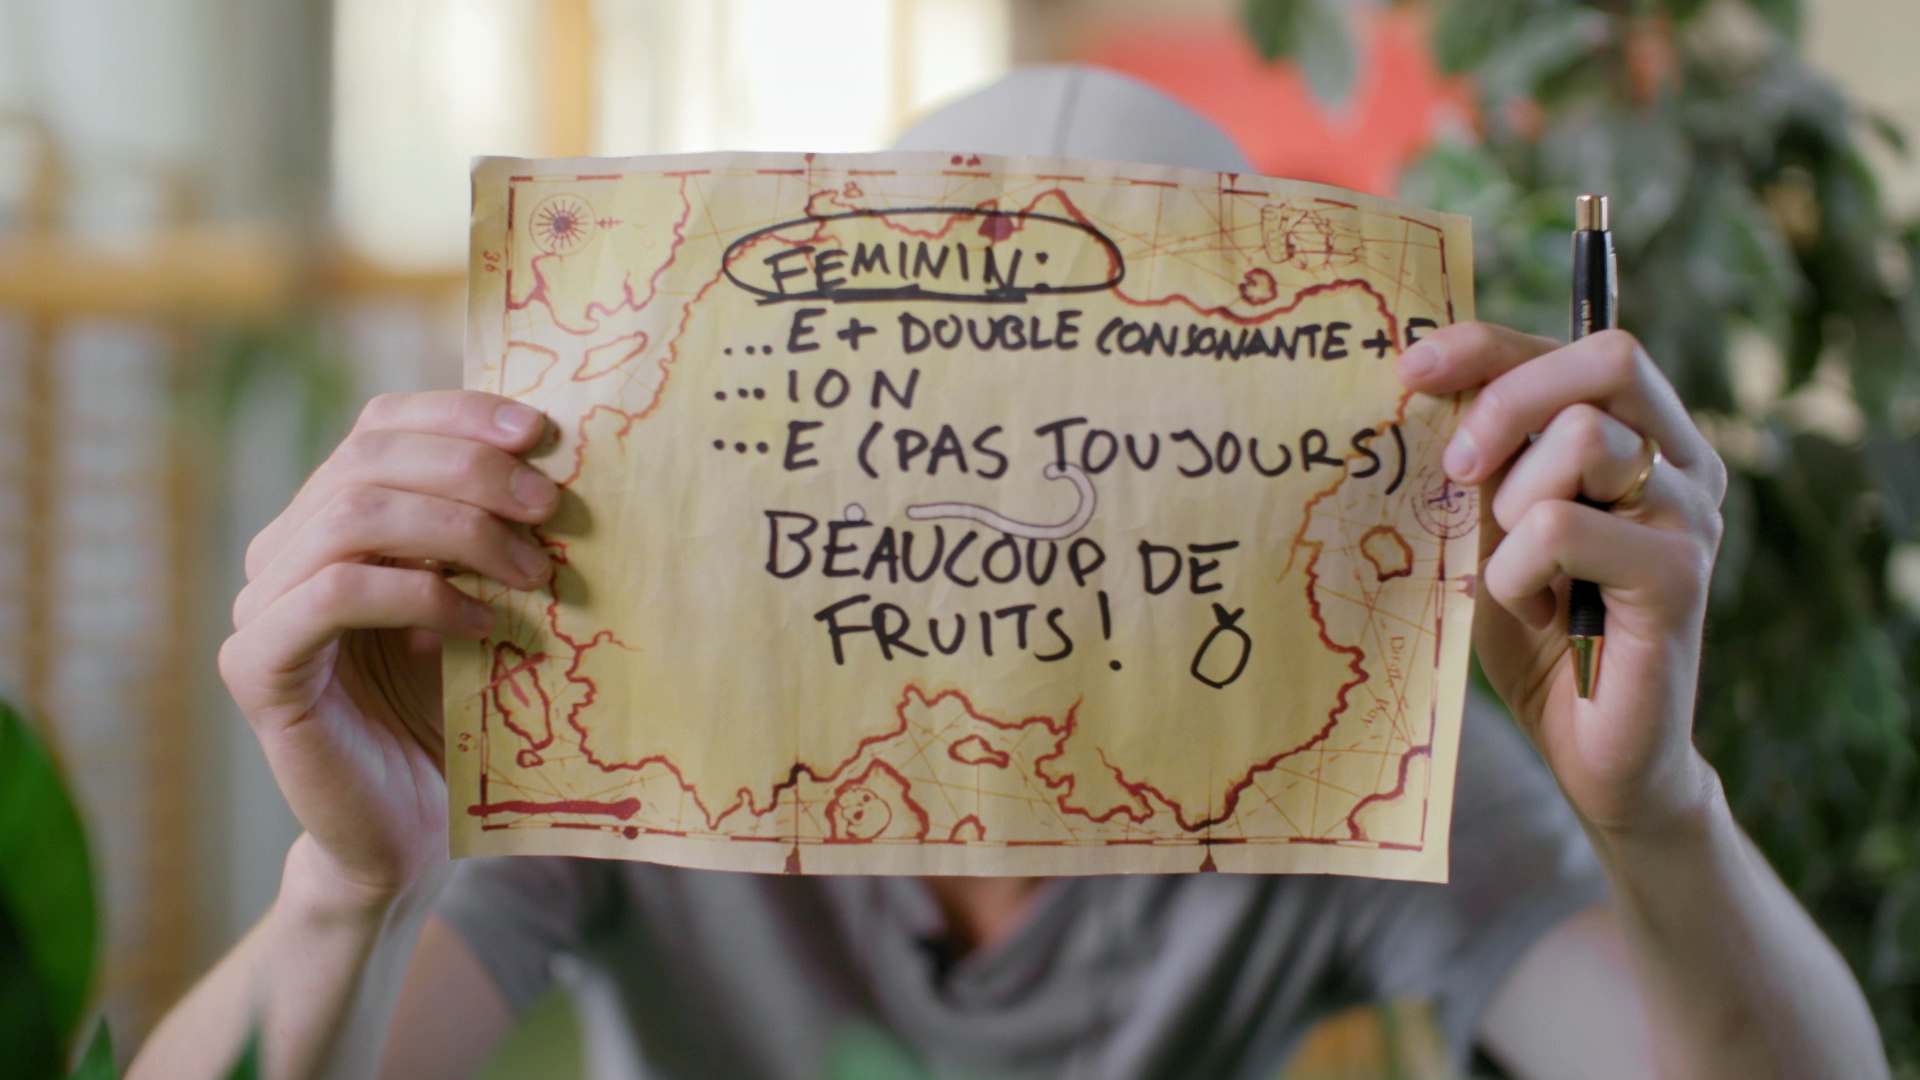 FEMININ:
...E + DOUBLE CONSONANTE + E
...ION
...E (PAS TOUJOURS)
BEAUCOUP DE
FRUITS!